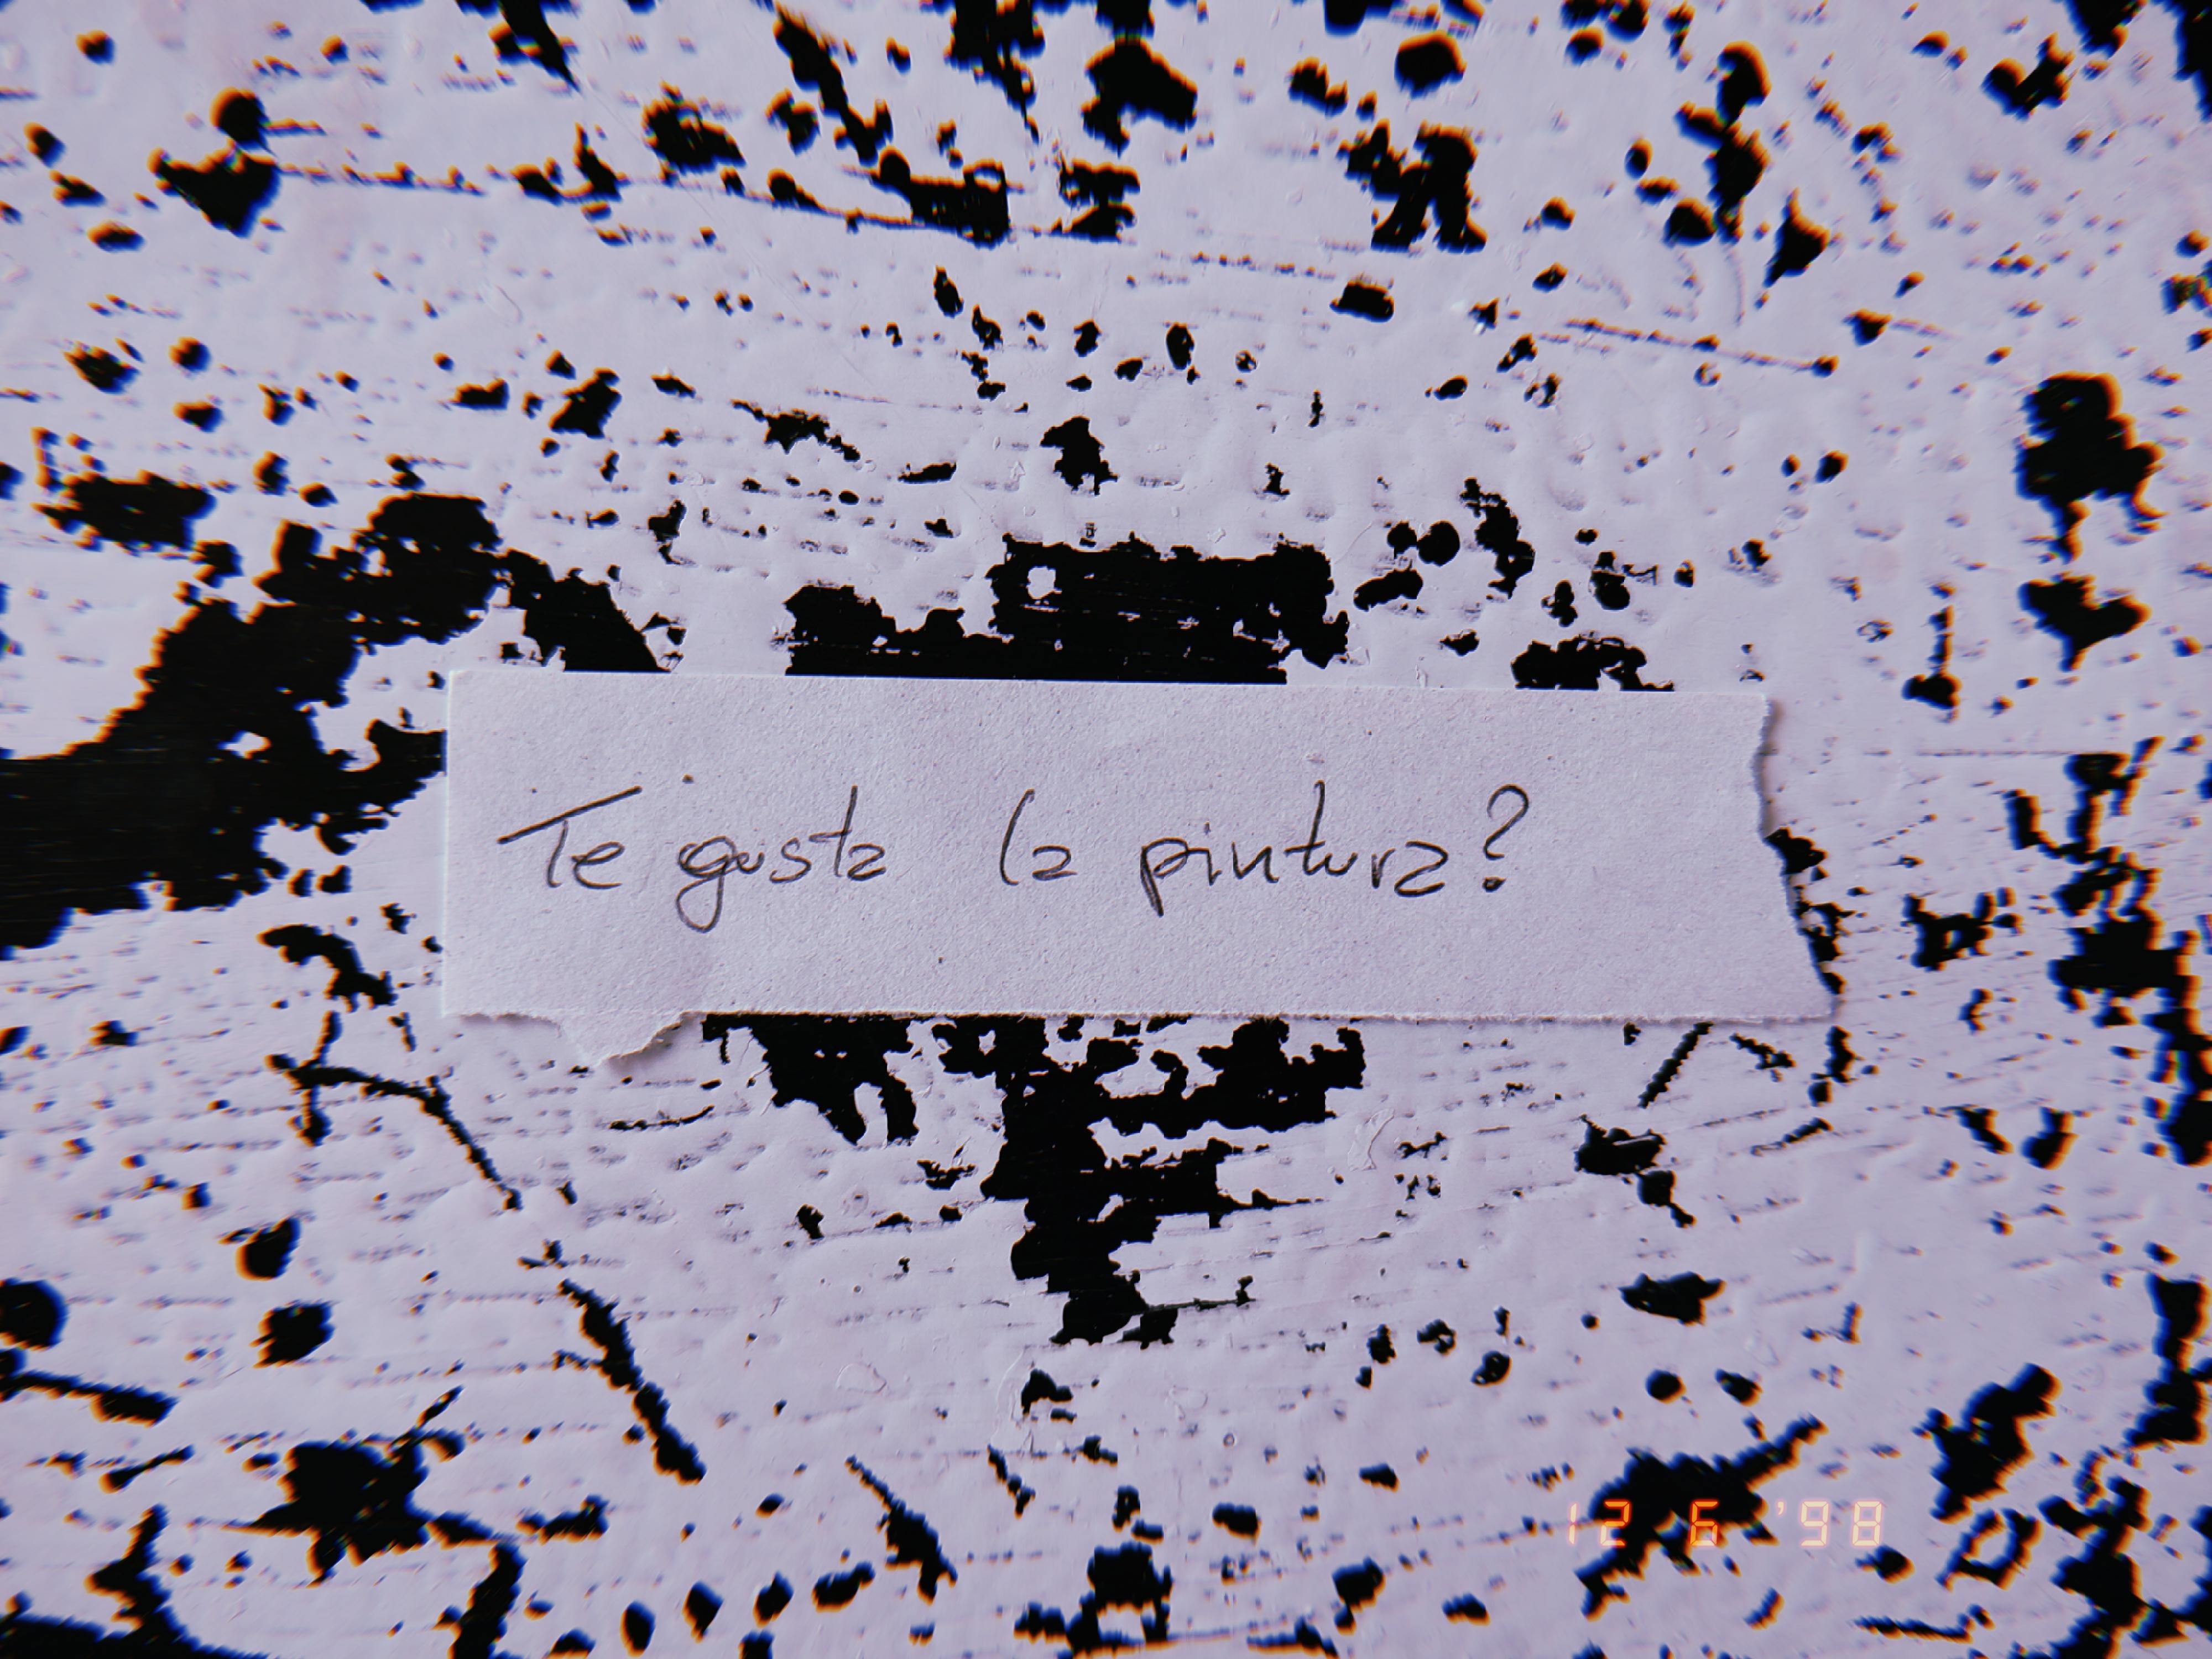 Te gusta la pintura?
12 6 '98